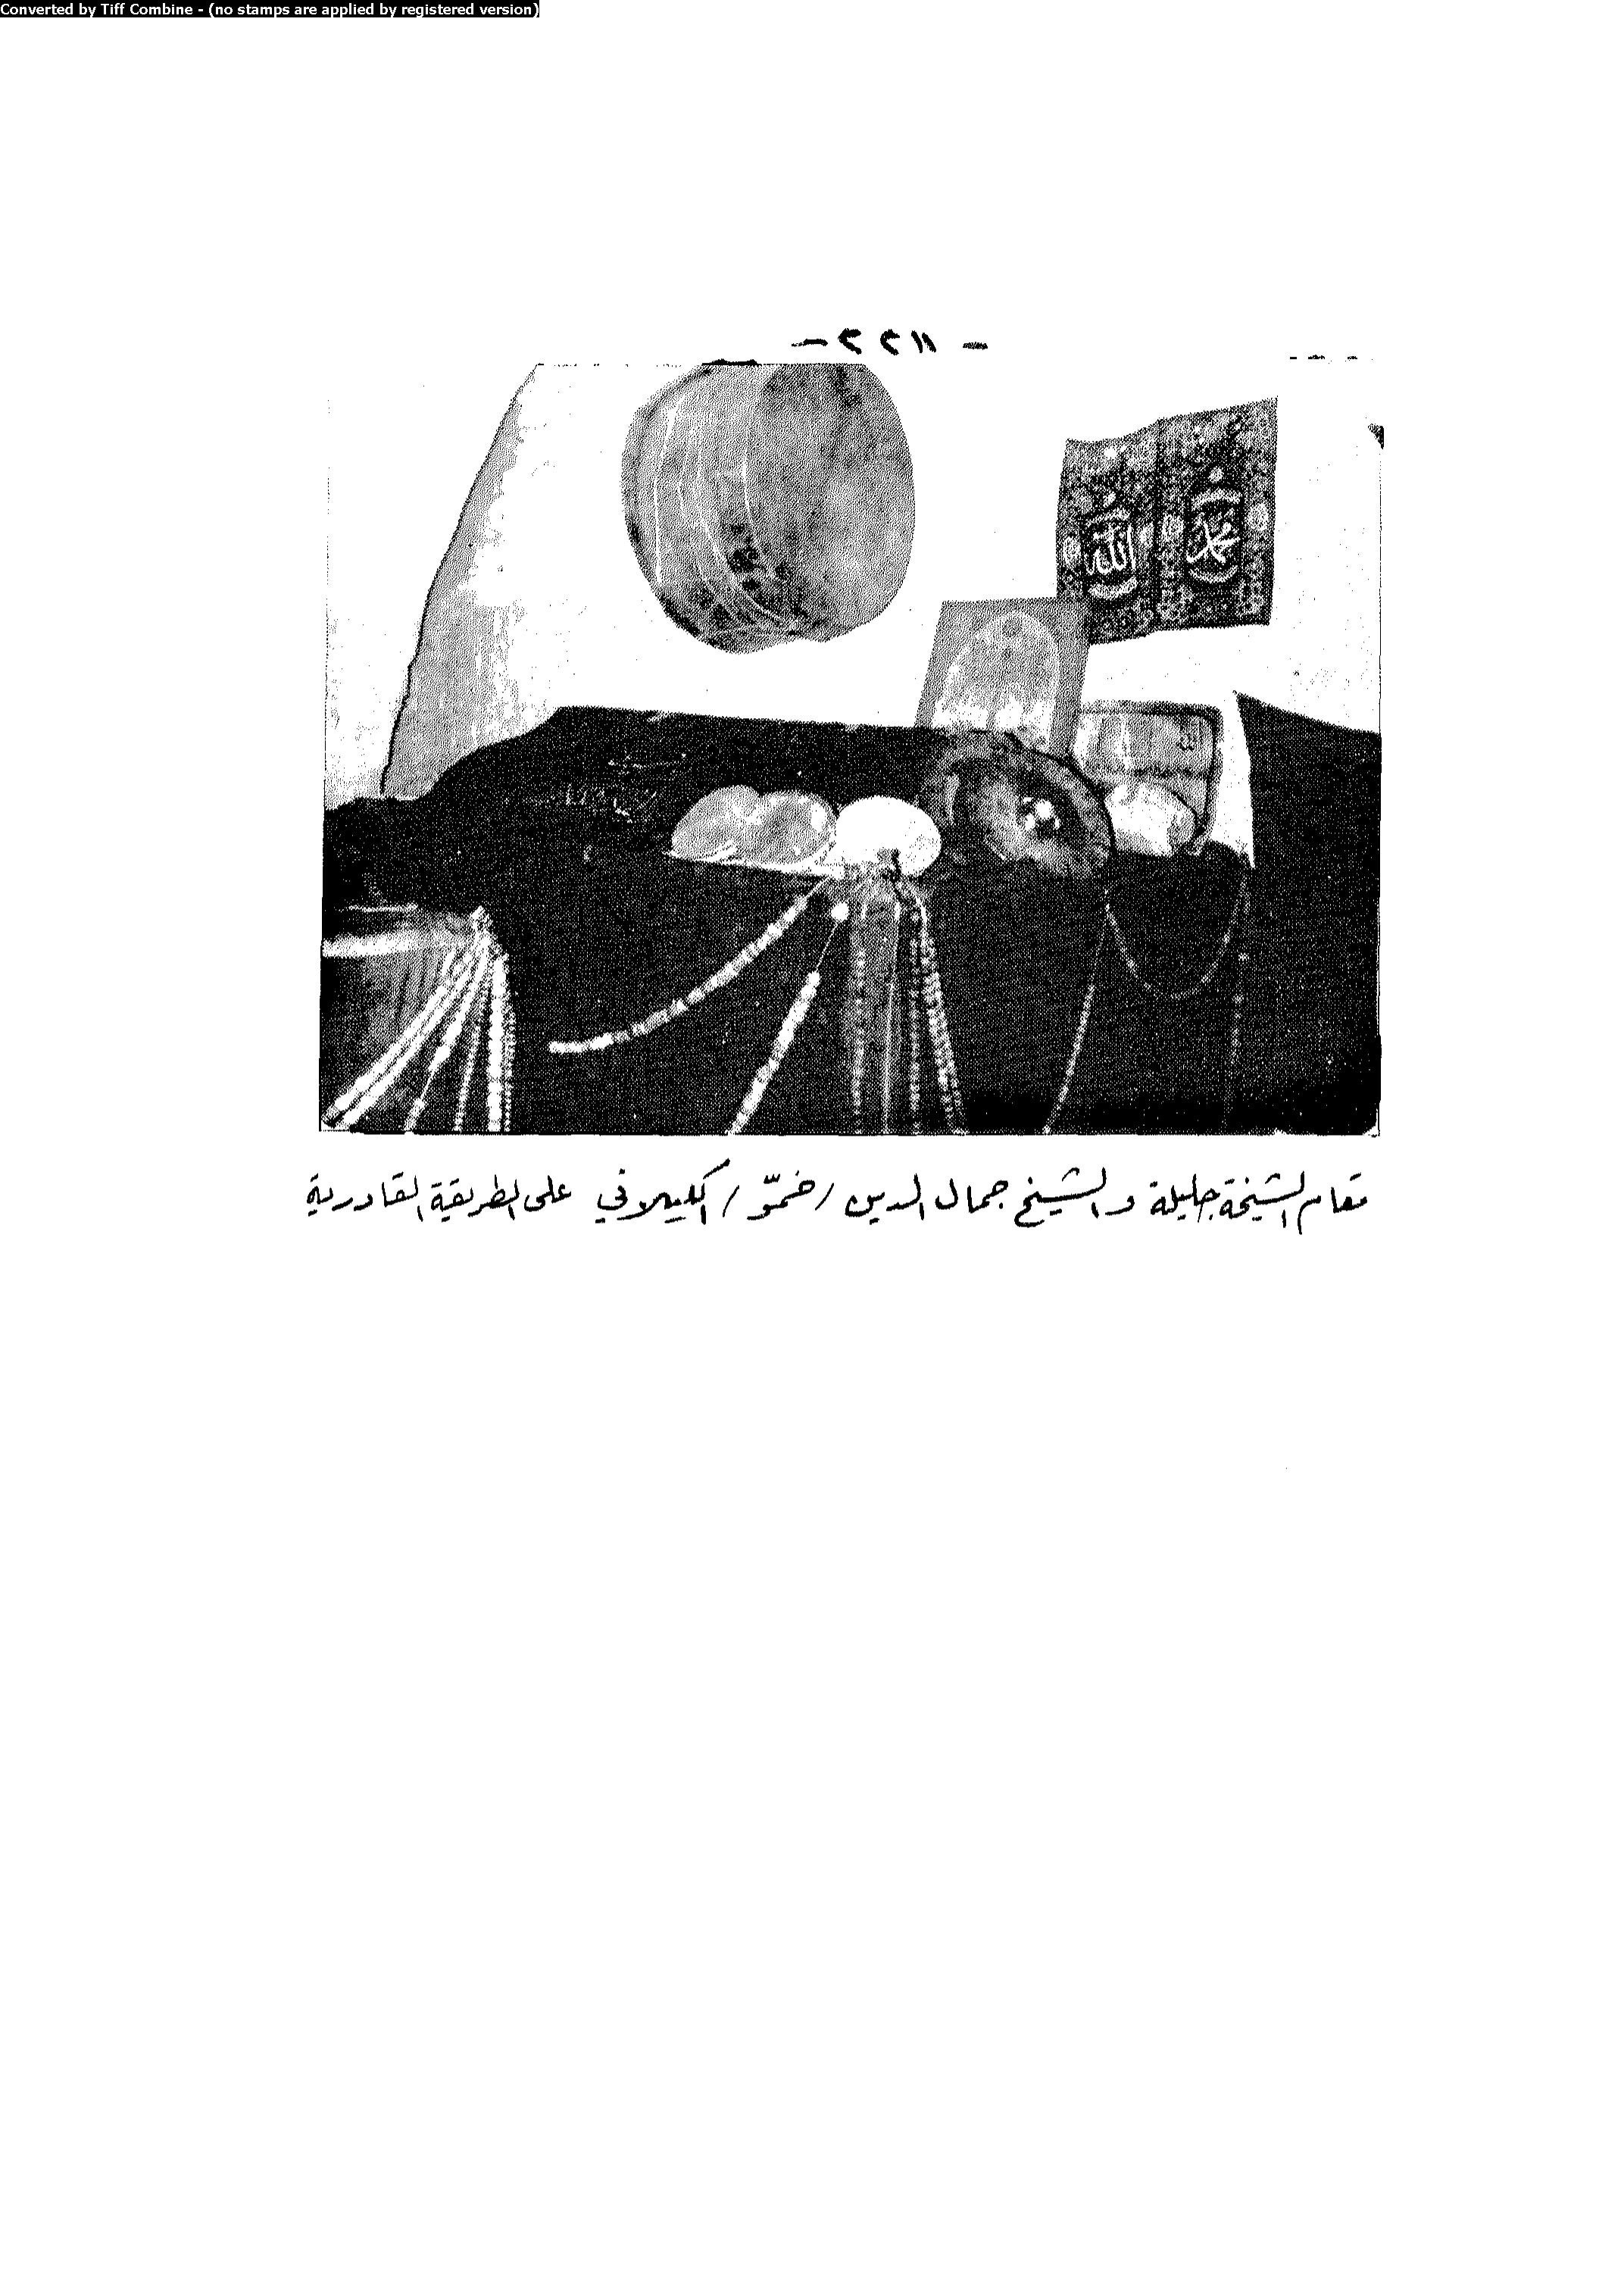 Converted by Tiff Combine - (no stamps are applied by registered version)
محمد
الله
مقام الشيخة جليلة والشيخ جمال الدين / خمّو / الكيلاني على الطريقة القادرية